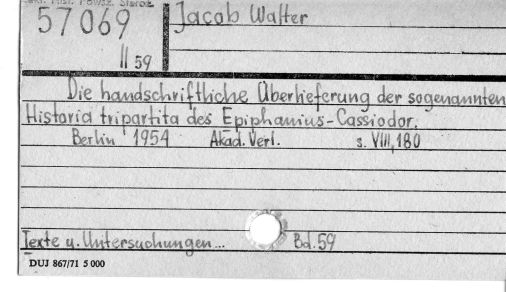 57069
II 59
Jacob Walter
Die handschriftliche Überlieferung der sogenannten
Historia tripartita des Epiphanius-Cassiodor.
Berlin 1954 Akad. Verl. s. VIII, 180
Texte u. Untersuchungen... Bd. 59
DUJ 867/71 5 000